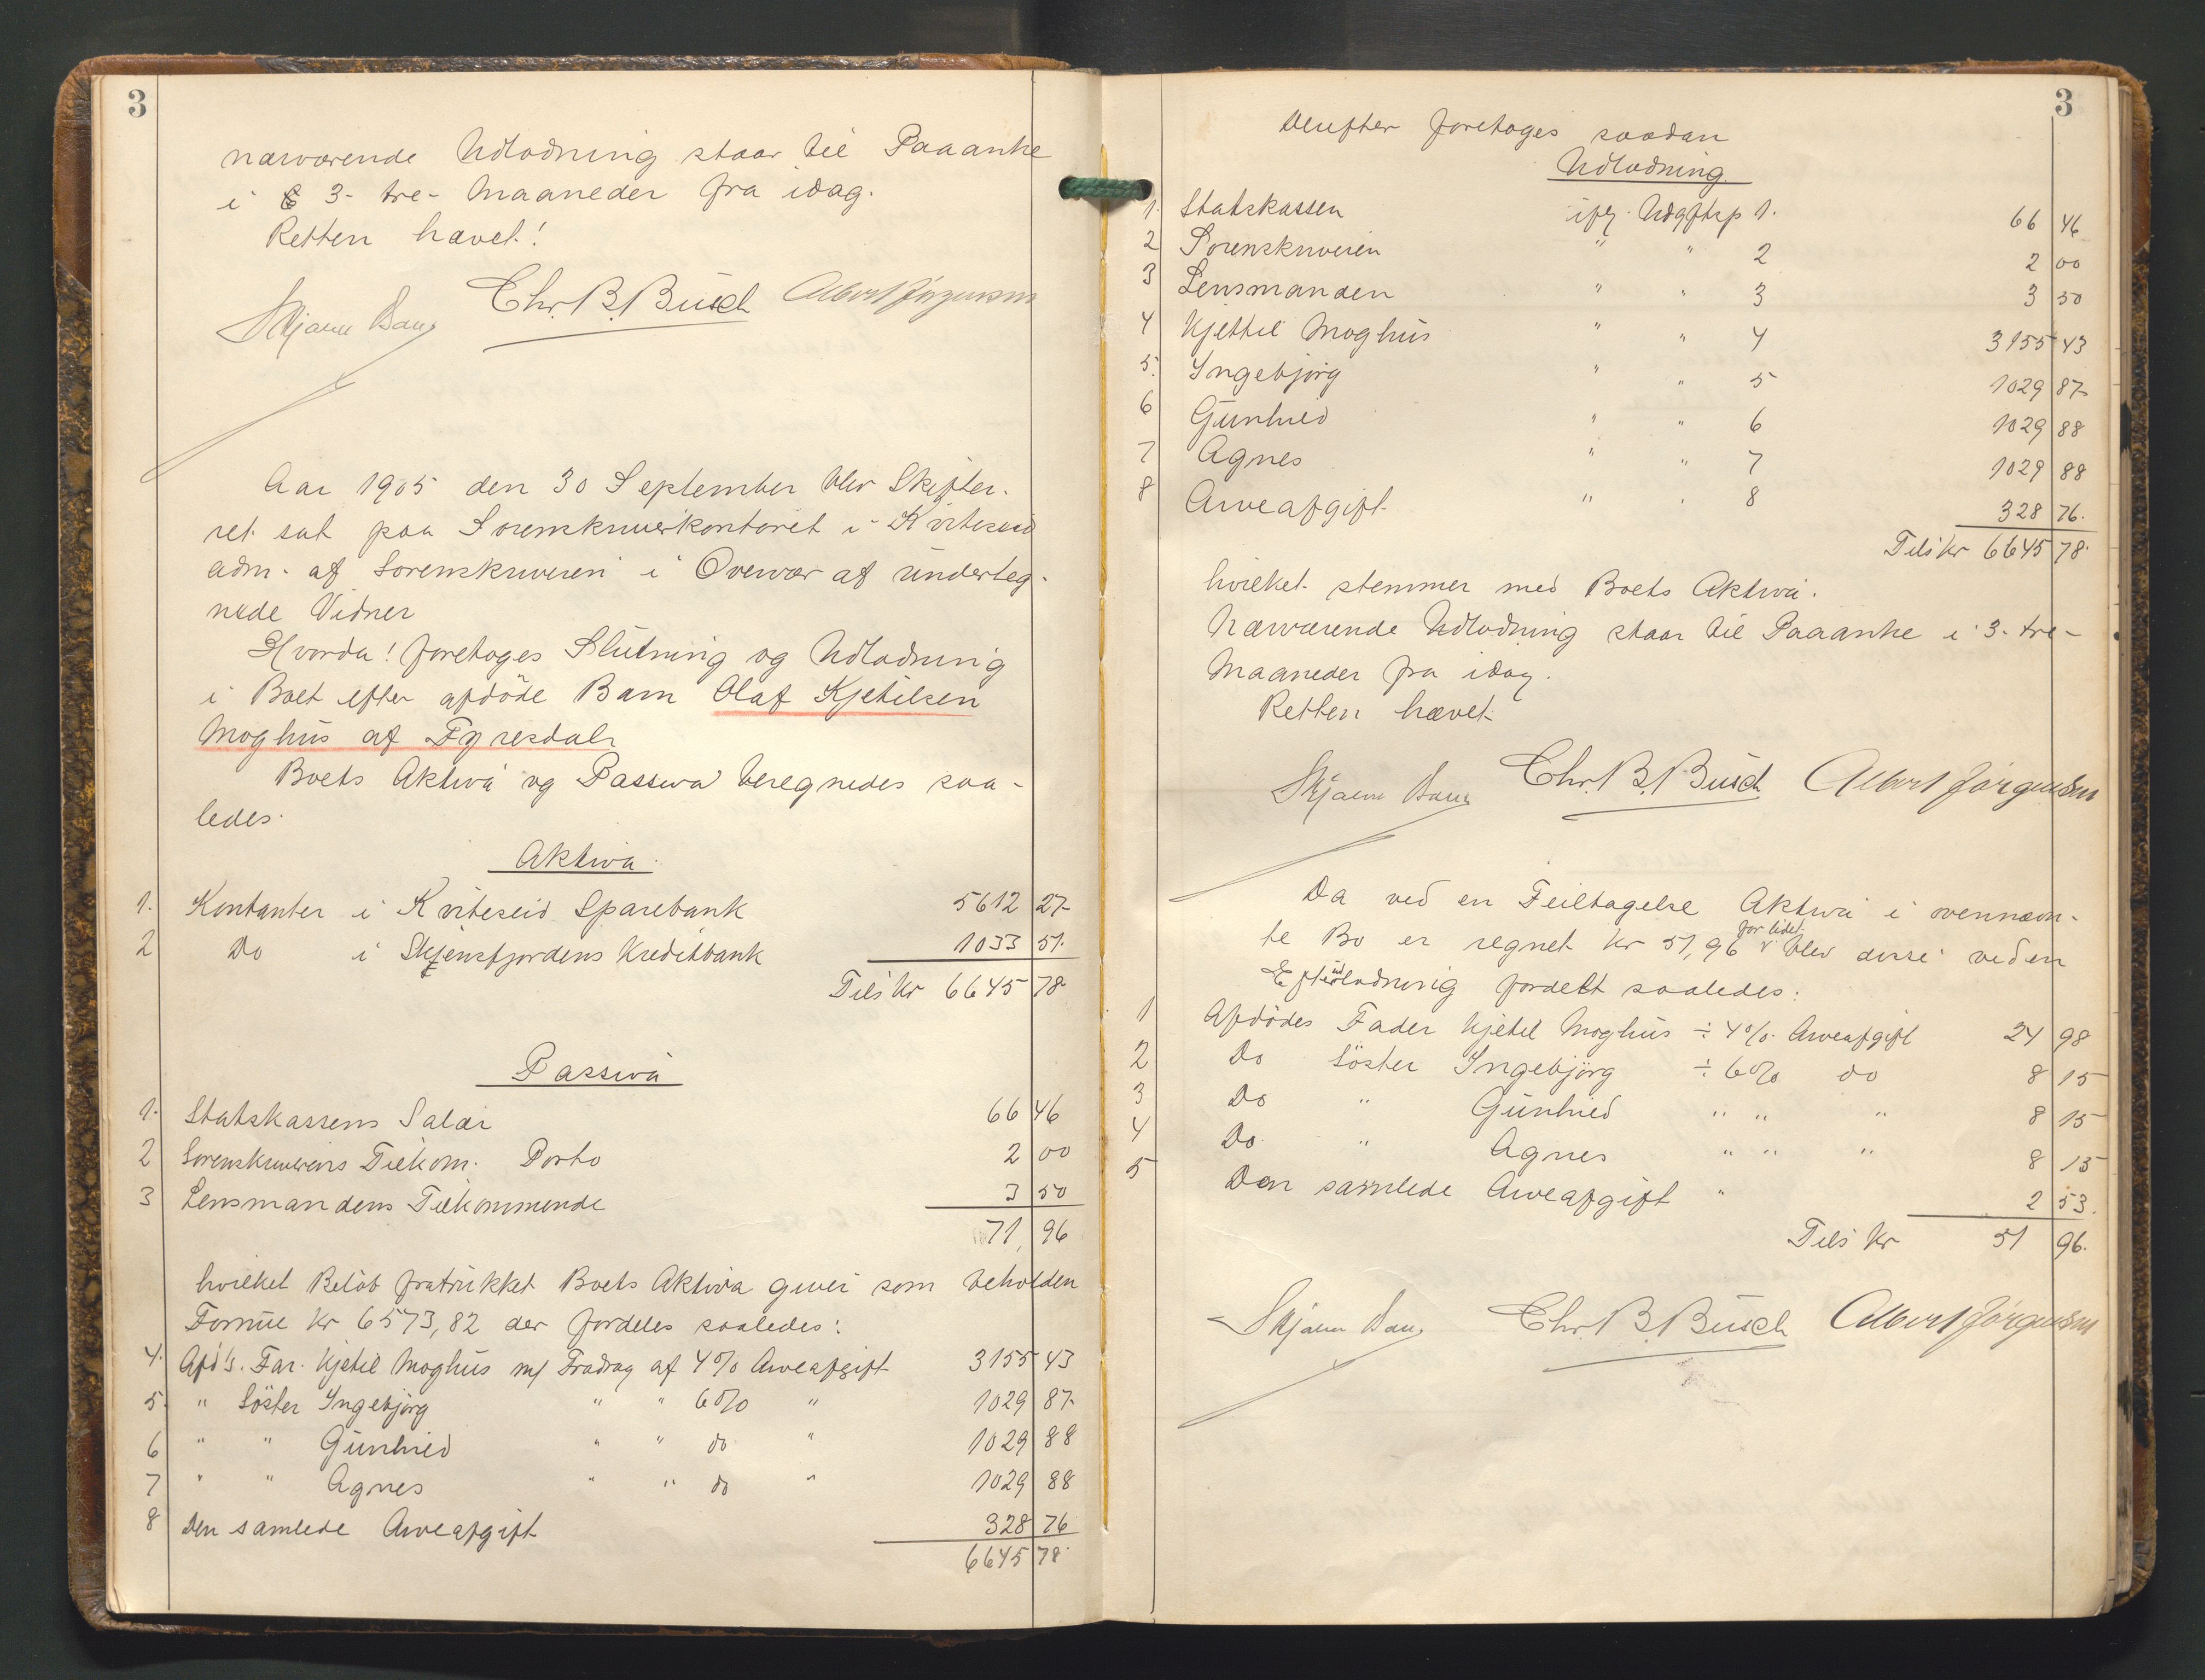 3
nærværende Udlodning staar til Paaanke
i 3- tre- Maaneder fra idag.
Retten hævet!
Chr. B. Busch Albert Jörgensen
Aar 1905 den 30 September blev Skifter-
ret sat paa Sorenskriverkontoret i Kviteseid
adm. af Sorenskriveren i Overvær af underteg-
nede Vidner
Hvorda! foretoges Slutning og Udlodning
i Boet efter afdöde Barn Olaf Kjetilsen
Moghus af Fyresdal.
Boets Aktiva og Passiva beregnedes saa-
ledes.
Aktiva.
1. Kontanter i Kviteseid Sparebank 5612 27
2 Do i Skiensfjordens Kreditbank 1033 51.
Tils Kr 6645 78
Passiva
1. Statskassens Salær 66 46
2 Sorenskriverens Tilkom. Porto 2 00
3 Lensmandens Tilkommende 3 50
71,96
hvilket Belöb fratrukket Boets Aktiva giver som beholden
Formue Kr 6573,82 der fordeles saaledes:
4. Afd's. Far. Kjetil Moghus m/ Fradrag af 4% Arveafgift 3155 43
5. " Söster Ingebjörg " " 6% " 1029 87
6 " " Gunhild " " do " 1029 88
7 " " Agnes " " do " 1029 88
8 Den samlede Arveafgift 328 76
6645 78
3
Derefter foretoges saadan
Udlodning.
1. Statskassen ifg. Udgftsp 1. 66 46
2 Sorenskriveren " " 2 2 00
3 Lensmanden " " 3 3 50
4 Kjettil Moghus " " 4 3155 43
5. Ingebjörg " " 5 1029 87
6 Gunhild " " 6 1029 88
7 Agnes " " 7 1029 88
8 Arveafgift " " 8 328 76.
Tils Kr 6645 78.
hvilket stemmer med Boets Aktiva.
Nærværende Udlodning staar til Paaanke i 3- tre-
Maaneder fra idag.
Retten hævet
Chr. B. Busch Albert Jörgensen
Da ved en Feiltagelse Aktiva i ovennævn-
te Bo er regnet Kr 51,96 for lidet blev disse ved en
Efterudlodning fordelt saaledes:
1 Afdödes Fader Kjetil Moghus ÷ 4%. Arveafgift 24 98
2 Do Söster Ingebjörg ÷ 6% do 8 15
3 Do " Gunhild " " " 8 15
4 Do " Agnes " " " 8 15
5 Den samlede Arveafgift " 2 53.
Tils Kr 51 96.
Chr. B. Busch Albert Jörgensen